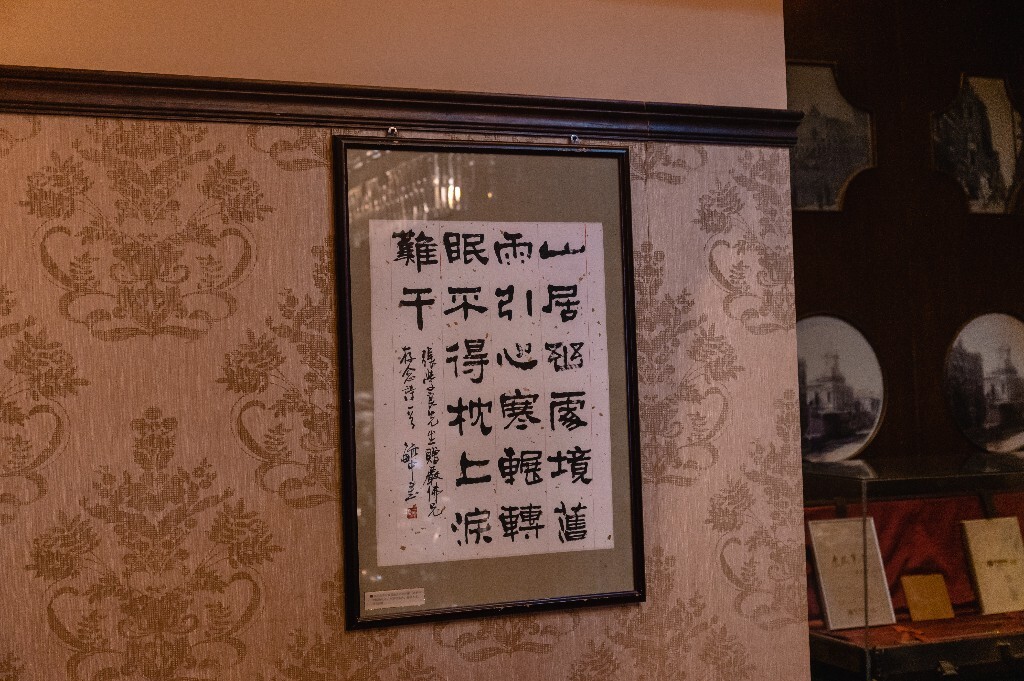 山居幽處境舊
雨引心寒輾轉
眠不得枕上淚
難干
張學良先生贈嚴佛兄
存念詩一首